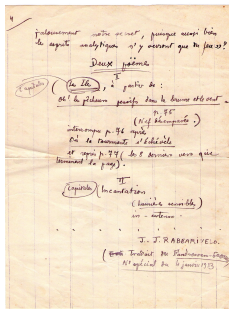 4
jalousement notre secret, puisque aussi bien
les esprits analytiques n'y verront que du feu »?
Deux poèmes
I
Capitales
(Le Ile, à partir de :
Oh! le pêcheur pensif dans la brume et le vent
p. 75
interrompu p. 76 après
Où le tourmente s'échevèle
et repris p. 77 (les 8 derniers vers que
terminent la page).
II
Capitales
Incantation
(Lumière sensible)
in extenso
J.-J. RABEARIVELO.
(Extrait du
N° spécial du 4 janvier 193